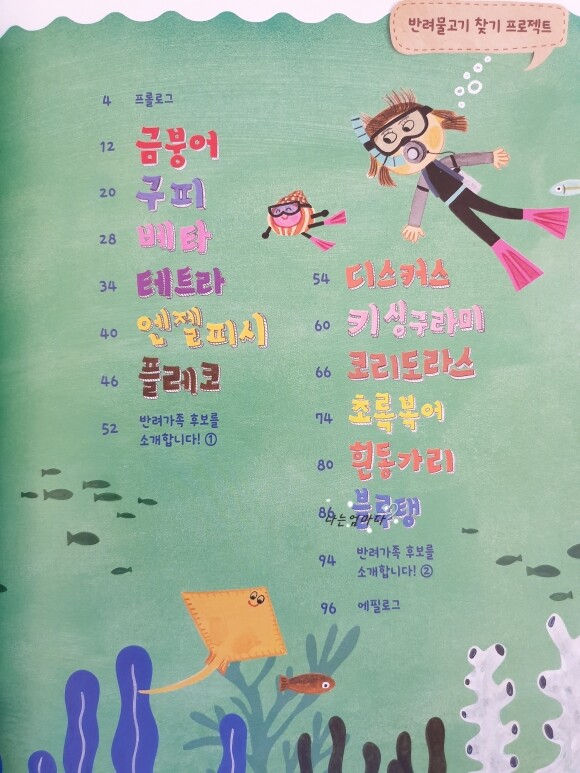 반려물고기 찾기 프로젝트
4 프롤로그
12 금붕어
20 구피
28 베타
34 테트라
40 엔젤피시
46 플레코
52 반려가족 후보를
소개합니다! ①
54 디스커스
60 키싱구라미
66 코리도라스
74 초록복어
80 흰동가리
86 블루탱
나는엄마다
94 반려가족 후보를
소개합니다! ②
96 에필로그